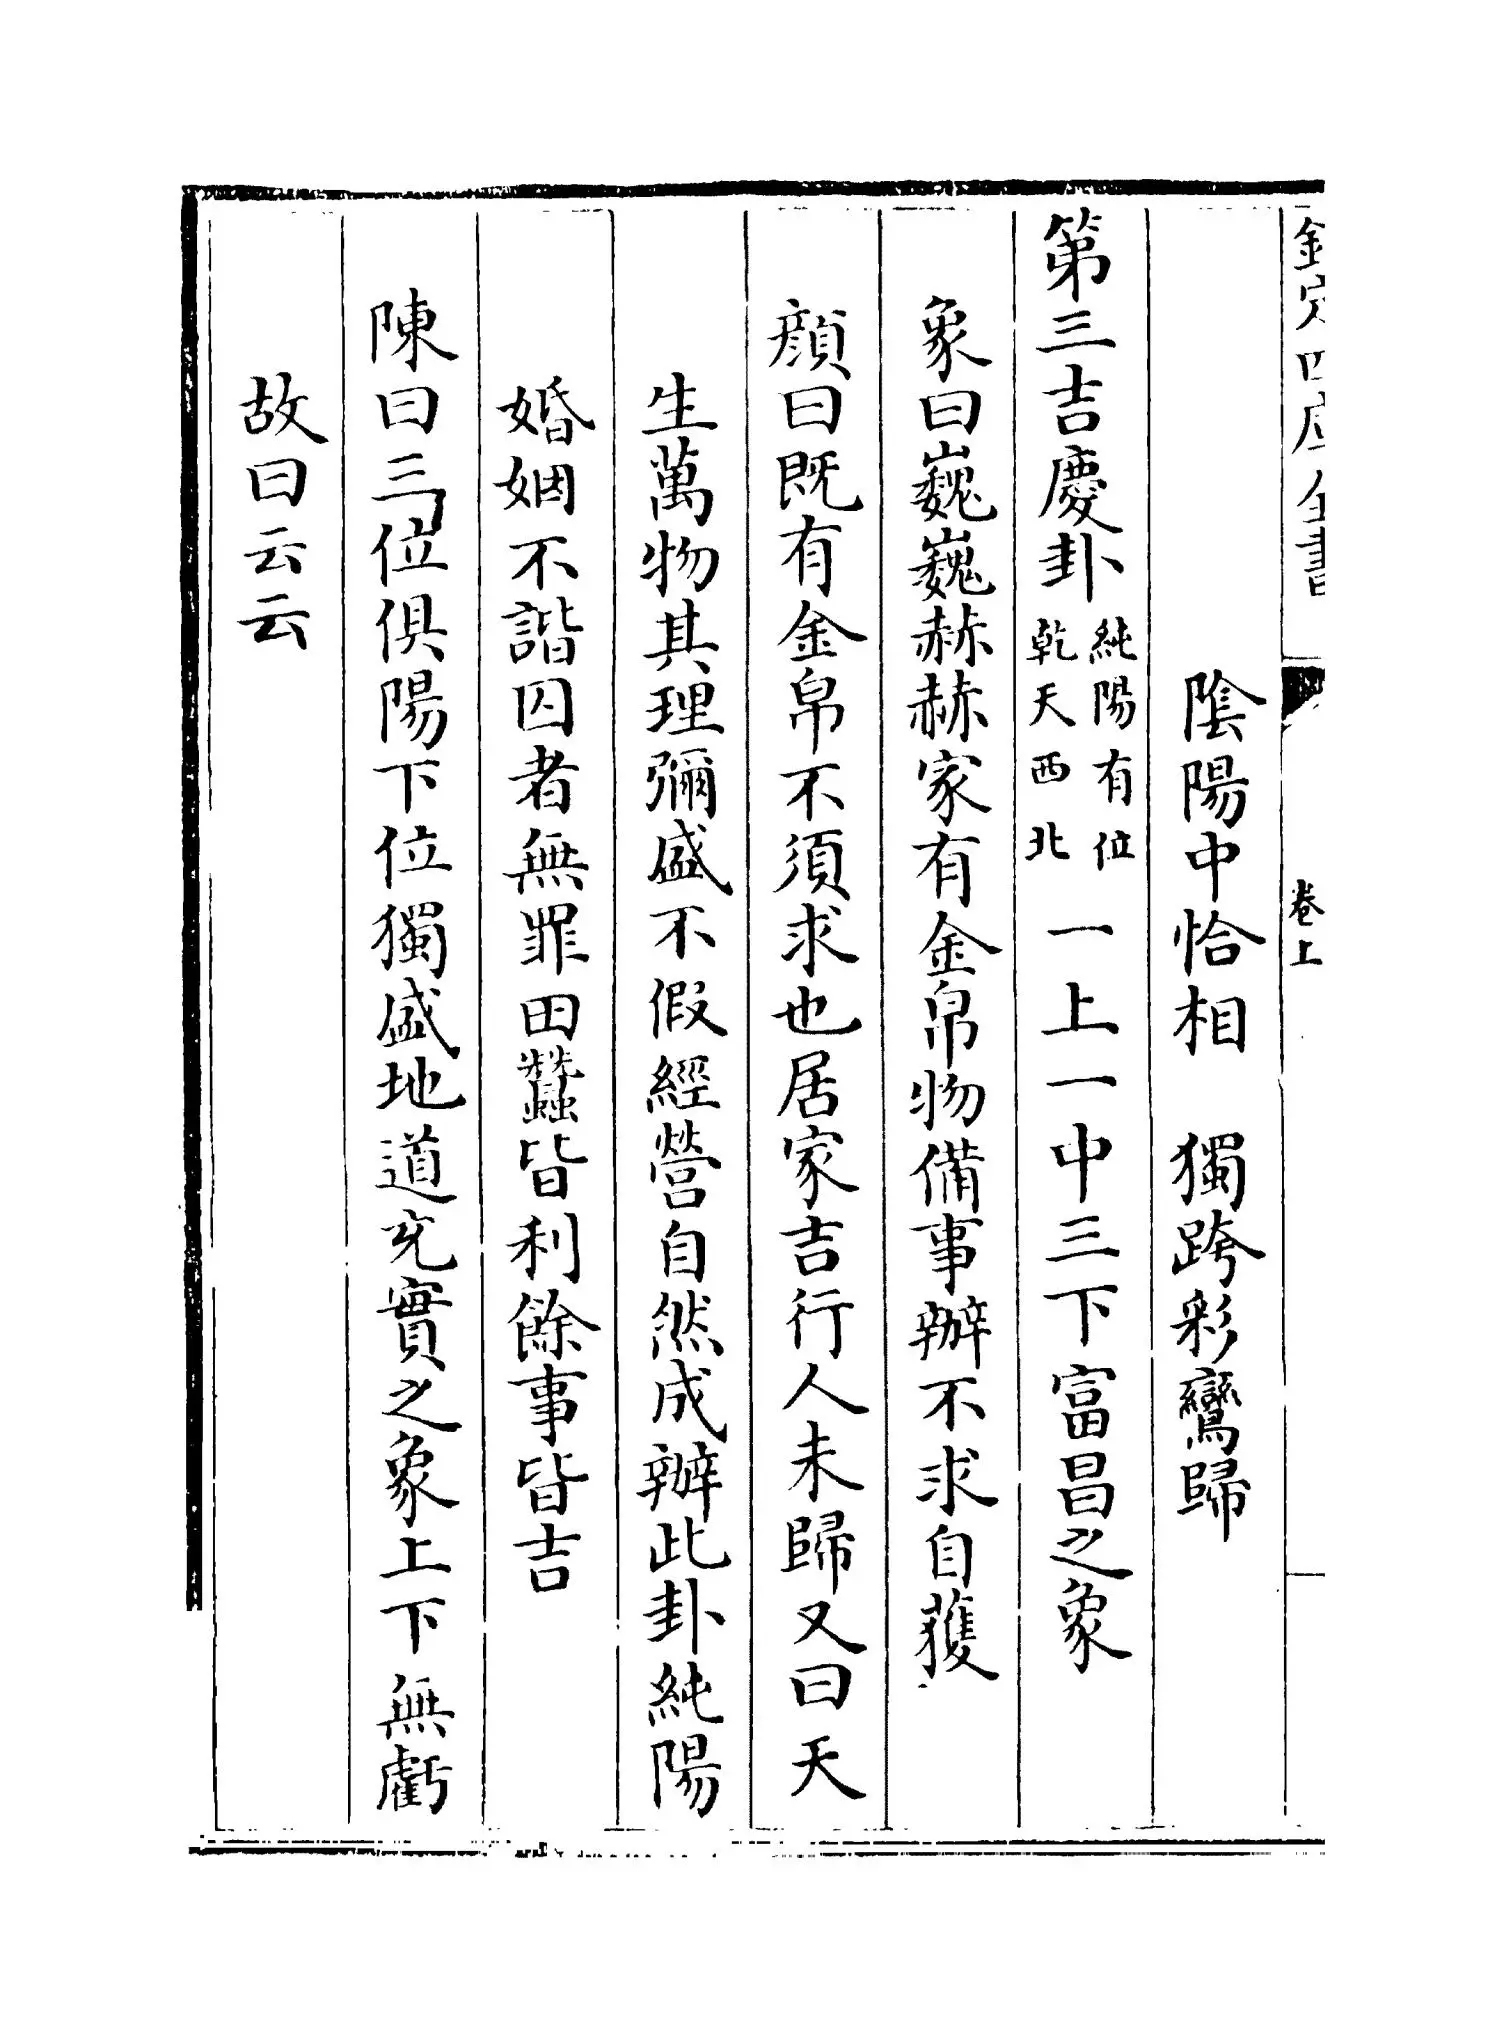 欽定四庫全書
卷上
陰陽中恰相　獨跨彩鸞歸
第三吉慶卦純陽有位乾天西北一上一中三下富昌之象
象曰巍巍赫赫家有金帛物備事辦不求自獲
顔曰既有金帛不須求也居家吉行人未歸又曰天
生萬物其理彌盛不假經營自然成辦此卦純陽
婚姻不諧囚者無罪田蠶皆利餘事皆吉
陳曰三位俱陽下位獨盛地道充實之象上下無虧
故曰云云